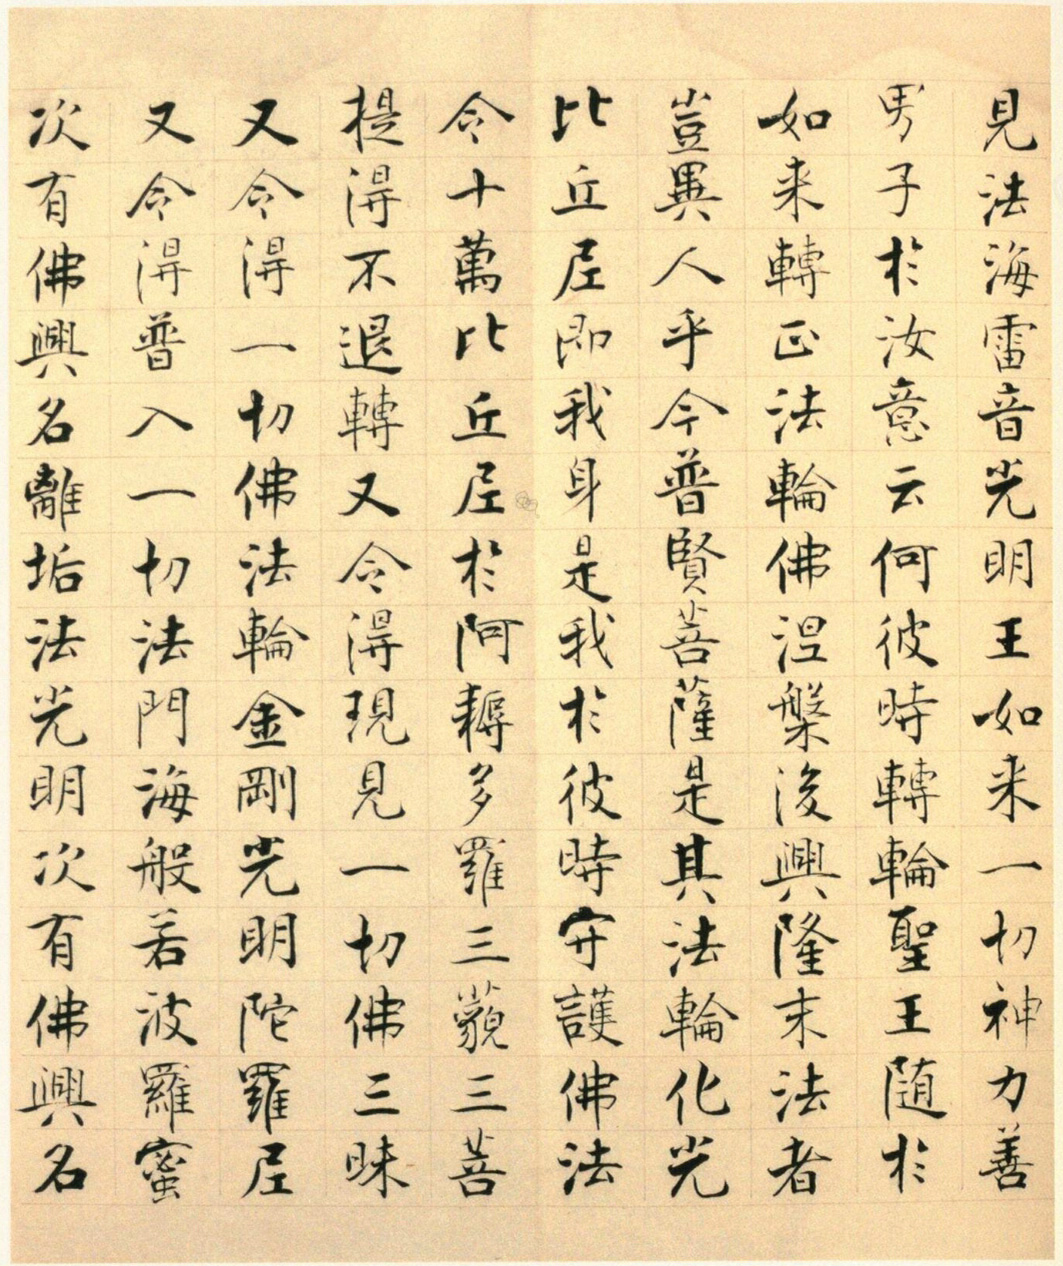 見法海雷音光明王如来一切神力善
男子於汝意云何彼時轉輪聖王随於
如来轉正法輪佛涅槃後興隆末法者
豈異人乎今普賢菩薩是其法輪化光
比丘尼即我身是我於彼時守護佛法
令十萬比丘尼於阿耨多羅三藐三菩
提得不退轉又令得現見一切佛三昧
又令得一切佛法輪金剛光明陀羅尼
又令得普入一切法門海般若波羅蜜
次有佛興名離垢法光明次有佛興名